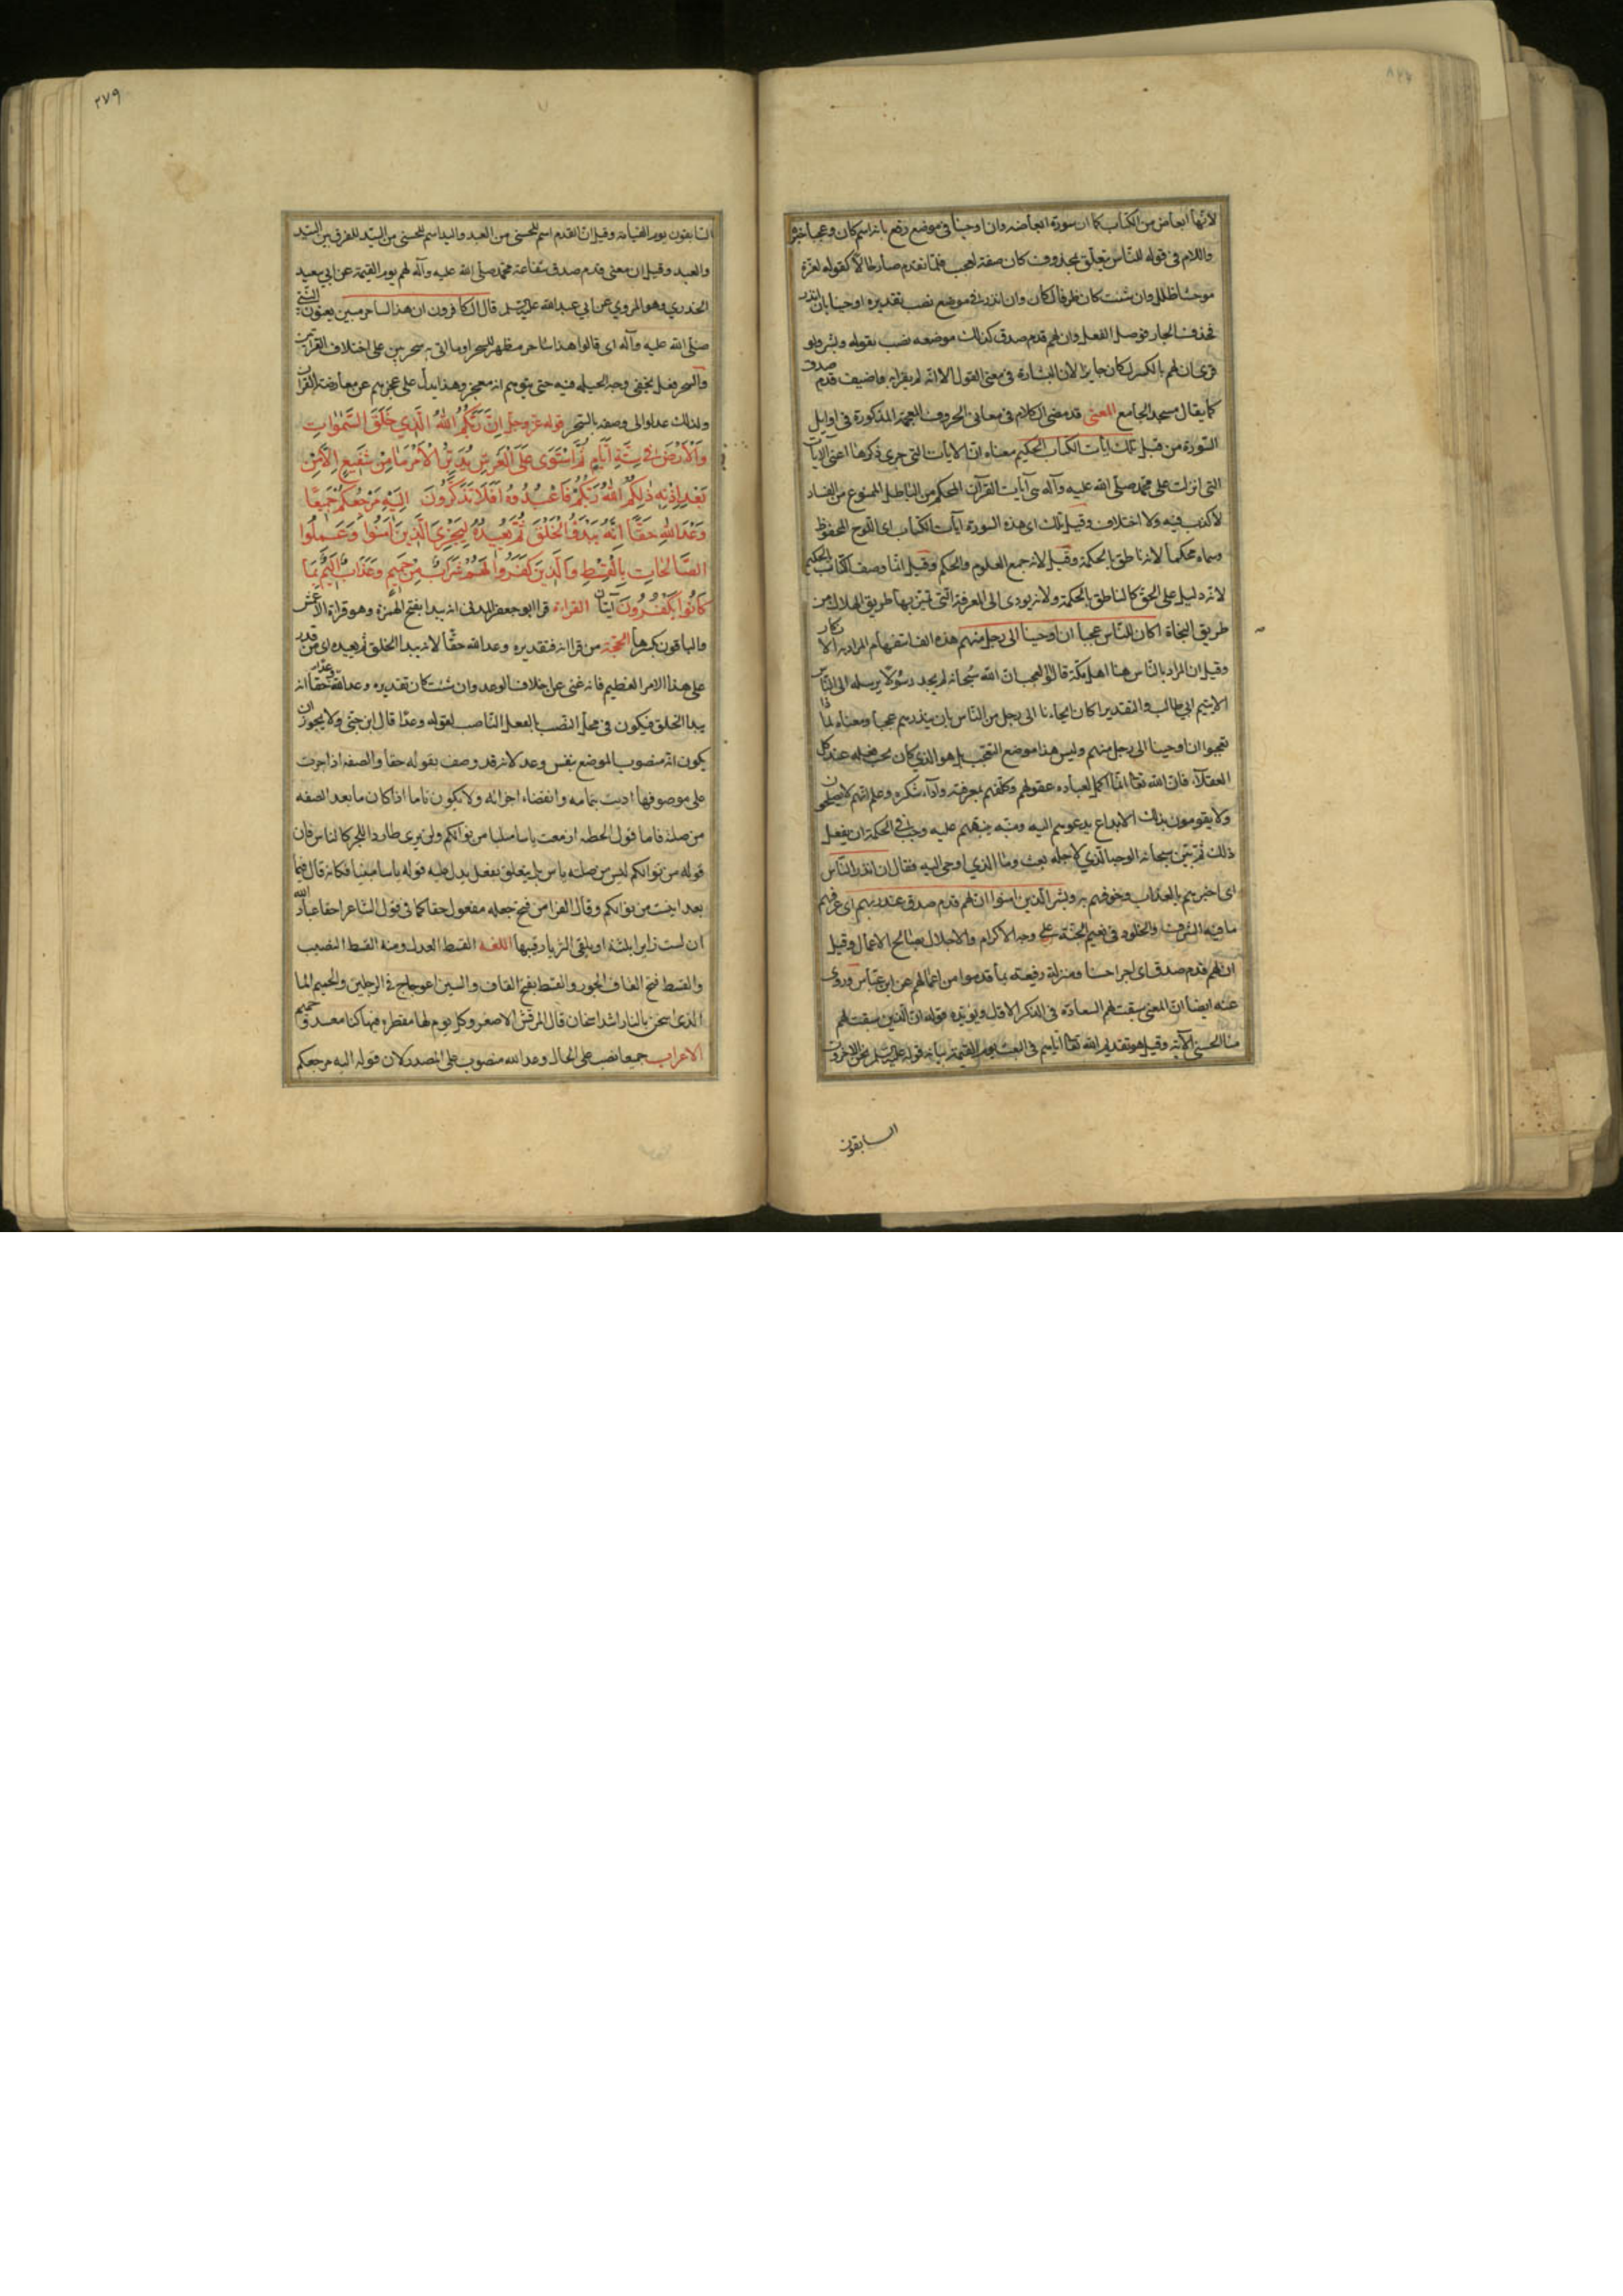 لانها ابعاض من الكتاب كما ان سورة ابعاضه وان اوحينا فى موضع رفع بانه اسم كان وعجبا خبره
واللام فى قوله للناس يتعلق بمحذوف كان صفة لعجب فلما تقدم صار حالا كقوله لعزة
موحشا طلل وان شئت كان ظرفا لكان وان انذر فى موضع نصب تقديره اوحينا بان انذر
فحذف الجار فوصل الفعل وان لهم قدم صدق كذلك موضعه نصب بقوله وبشر ولو
قرئ ان لهم بالكسر لكان جايزا لان البشارة فى معنى القول الا انه لم يقرا به فاضيف قدم صدق
كما يقال مسجد الجامع المعنى قد مضى الكلام فى معانى الحروف المعجمة المذكورة فى اوايل
السورة من قبل تلك ايات الكتاب الحكيم معناه ان الايات التى جرى ذكرها اعنى الايات
التى انزلت على محمد صلى الله عليه وآله هى آيات القرآن المحكم من الباطل الممنوع من الفساد
لا كذب فيه ولا اختلاف وقيل تلك اى هذه السورة ايات الكتاب اى اللوح المحفوظ
وسماه محكما لانه ناطق بالحكمة وقيل لانه جمع العلوم والحكم وقيل انما وصف الكتاب بالحكيم
لانه دليل على الحق كالناطق بالحكمة ولانه يودى الى المعرفة التى تميز بها طريق الهلاك من
طريق النجاة اكان للناس عجبا ان اوحينا الى رجل منهم هذه الف استفهام المراد به الانكار
وقيل ان المراد بالناس هنا اهل مكة قالوا العجب ان الله سبحانه لم يجد رسولا يرسله الى الناس
الا يتيم ابى طالب والتقدير اكان ايحاءنا الى رجل من الناس بان ينذرهم عجبا ومعناه لماذا
تعجبوا ان اوحينا الى رجل منهم وليس هذا موضع التعجب بل هو الذى كان يجب فعله عند كل
العقلاء فان الله تعالى لما اكمل لعباده عقولهم وكلفهم بمعرفته واداء شكره وعلم انهم لا يصلحون
ولا يقومون بذلك الا بداع يدعوهم اليه ومنبه ينبههم عليه وجب فى الحكمة ان يفعل
ذلك ثم بين سبحانه الوجه الذى لاجله بعث وما الذى اوحى اليه فقال ان انذر الناس
اى اخبرهم بالعذاب وخوفهم به وبشر الذين امنوا ان لهم قدم صدق عند ربهم اى عرفهم
ما فيه الشرف والخلود فى نعيم الجنة على وجه الاكرام والاجلال بصالح الاعمال وقيل
ان لهم قدم صدق اى اجرا حسنا ومنزلة رفيعة بما قدموا من اعمالهم عن ابن عباس وروى
عنه ايضا ان المعنى سبقت لهم السعادة فى الذكر الاول ويؤيده قوله ان الذين سبقت لهم
منا الحسنى الآية وقيل هو تقديم الله تعالى اياهم فى البعث يوم القيمة بيانه قوله عليه السلم نحن الاخرون
السابقون
٣٧٩
السابقون يوم القيامة وقيل ان القدم اسم للحسنى من العبد واليد اسم للحسنى من السيد للفرق بين السيد
والعبد وقيل ان معنى قدم صدق شفاعة محمد صلى الله عليه وآله لهم يوم القيمة عن ابى سعيد
الخدرى وهو المروى عن ابى عبد الله عليه السلم قال الكافرون ان هذا لساحر مبين يعنون النبى
صلى الله عليه وآله اى قالوا هذا ساحر مظهر للسحر وما اتى به سحر بين على اختلاف القراءتين
والسحر فعل يخفى وجه الحيلة فيه حتى يتوهم انه معجز وهذا يدل على عجزهم عن معارضة القران
ولذلك عدلوا الى وصفه بالسحر قوله عز وجل إن ربكم الله الذي خلق السموات
والأرض في ستة أيام ثم استوى على العرش يدبر الأمر ما من شفيع إلا من
بعد إذنه ذلكم الله ربكم فاعبدوه أفلا تذكرون إليه مرجعكم جميعا
وعد الله حقا إنه يبدؤا الخلق ثم يعيده ليجزي الذين آمنوا وعملوا
الصالحات بالقسط والذين كفروا لهم شراب من حميم وعذاب أليم بما
كانوا يكفرون آيتان القراءة قرا ابو جعفر المدنى انه يبدا بفتح الهمزة وهو قراءة الاعمش
والباقون بكسرها الحجة من قرا انه فتقديره وعد الله حقا لانه يبدا الخلق ثم يعيده اى من قدر
على هذا الامر العظيم فانه غنى عن اخلاف الوعد وان شئت كان تقديره وعد الله وعدا حقا انه
يبدا الخلق فيكون فى محل النصب بالفعل الناصب لقوله وعدا قال ابن جنى ولا يجوز ان
يكون انه منصوب الموضع بنفس وعد لانه قد وصف بقوله حقا والصفة اذا جرت
على موصوفها اذنت بتمامه وانقضاء اجزائه ولا يكون تاما اذا كان ما بعد الصفه
من صلته فاما قول الحطيه ازمعت ياسا مبينا من نوالكم ولن ترى طاردا للحر كالناس فان
قوله من نوالكم ليس من صلة ياس بل يتعلق بفعل يدل عليه قوله ياسا مبينا فكانه قال فيما
بعد ايست من نوالكم وقال الفرا من فتح جعله مفعول حقا كما فى قول الشاعر احقا عباد الله
ان لست زايرا بثينة او يلقى الثريا رقيبها اللغه القسط العدل ومنه القسط النصيب
والقسط فتح القاف الجور والقسط بفتح القاف والسين اعوجاج فى الرجلين والحميم الما
الذى اسخن بالنار اشد اسخان قال المرقش الاصغر وكل يوم لها مقطرة فيها كبا معد وحميم
الاعراب جميعا نصب على الحال وعد الله منصوب على المصدر لان قوله اليه مرجعكم